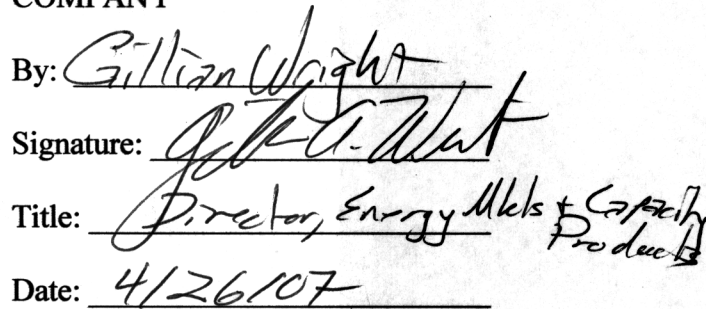 COMPANY
By: Gillian Wright
Signature:
Title: Director, Energy Mkts + Capacity Products
Date: 4/26/07